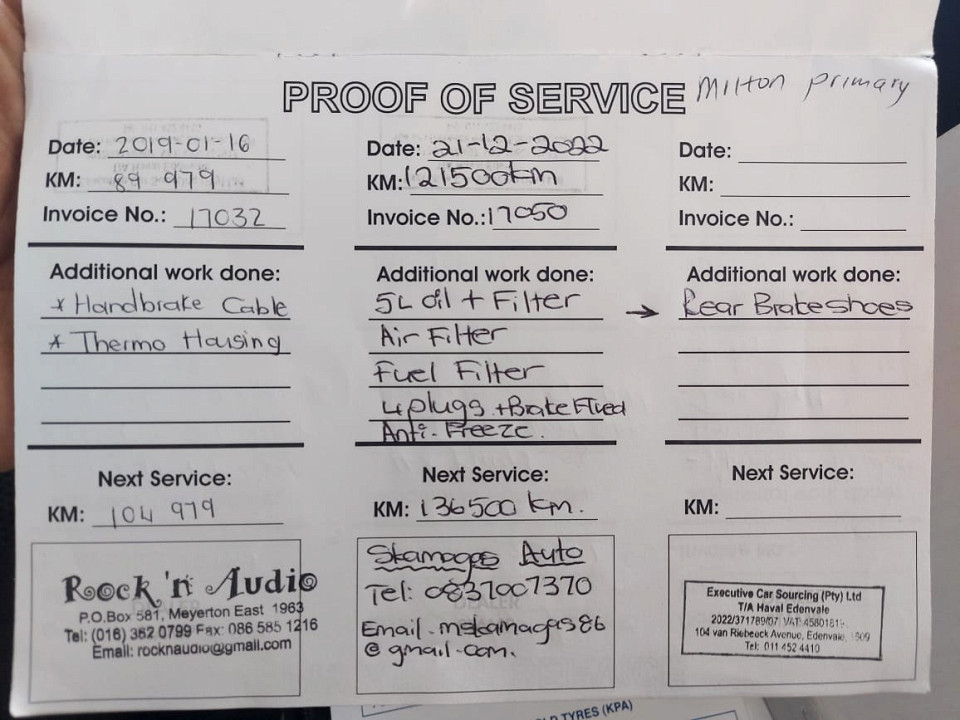 PROOF OF SERVICE
Milton primary
Date: 2019-01-16
KM: 89 979
Invoice No.: 17032
Additional work done:
* Handbrake Cable
* Thermo Housing
Next Service:
KM: 104 979
Rock 'n Audio
P.O.Box 581, Meyerton East 1963
Tel: (016) 362 0799 Fax: 086 585 1216
Email: rocknaudio@gmail.com
Date: 21-12-2022
KM: 121500km
Invoice No.: 17050
Additional work done:
5L oil + Filter
Air Filter
Fuel Filter
4 plugs + Brake Flued
Anti-Freeze.
Next Service:
KM: 136500 km.
Skamagas Auto
Tel: 0837007370
Email. mskamagas86
@gmail.com.
Date:
KM:
Invoice No.:
Additional work done:
→ Rear Brakeshoes
Next Service:
KM:
Executive Car Sourcing (Pty) Ltd
T/A Haval Edenvale
2022/371789/07 VAT:
104 van Riebeeck Avenue, Edenvale,
Tel: 011 452 4410
TYRES (KPA)